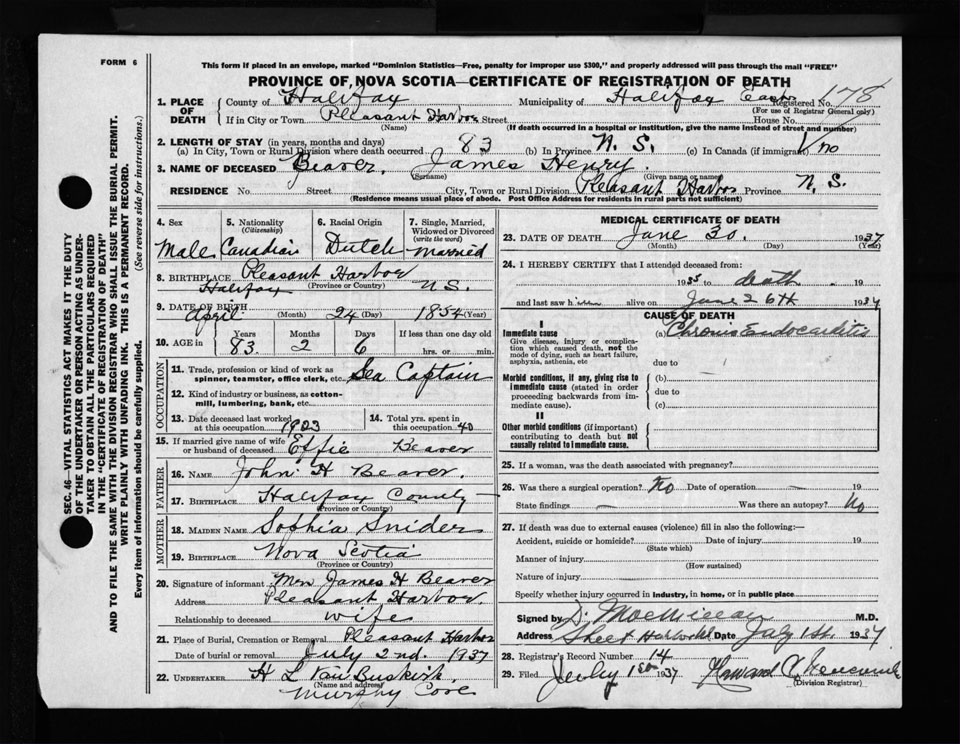 FORM 6
This form if placed in an envelope, marked "Dominion Statistics—Free, penalty for improper use $300," and properly addressed will pass through the mail "FREE"
PROVINCE OF NOVA SCOTIA—CERTIFICATE OF REGISTRATION OF DEATH
1. PLACE OF DEATH County of Halifax Municipality of Halifax East Registered No. 178
(For use of Registrar General only)
If in City or Town Pleasant Harbor Street House No.
(Name) (If death occurred in a hospital or institution, give the name instead of street and number)
2. LENGTH OF STAY (in years, months and days)
(a) In City, Town or Rural Division where death occurred 83 (b) In Province N. S. (c) In Canada (if immigrant) no
3. NAME OF DECEASED Beaver, James Henry
(Surname) (Given name or names)
RESIDENCE No. Street City, Town or Rural Division Pleasant Harbor Province N. S.
(Residence means usual place of abode. Post Office Address for residents in rural parts not sufficient)
4. Sex Male
5. Nationality (Citizenship) Canadian
6. Racial Origin Dutch
7. Single, Married, Widowed or Divorced (write the word) Married
8. BIRTHPLACE Pleasant Harbor
Halifax (Province or Country) N.S.
9. DATE OF BIRTH
April (Month) 24 (Day) 1854 (Year)
10. AGE in Years 83. Months 2 Days 6 If less than one day old hrs. or min.
OCCUPATION
11. Trade, profession or kind of work as spinner, teamster, office clerk, etc. Sea Captain
12. Kind of industry or business, as cotton-mill, lumbering, bank, etc.
13. Date deceased last worked at this occupation 1923
14. Total yrs. spent in this occupation 40
15. If married give name of wife or husband of deceased Effie Beaver
FATHER
16. NAME John H Beaver.
17. BIRTHPLACE Halifax County
(Province or Country)
MOTHER
18. MAIDEN NAME Sophia Snider
19. BIRTHPLACE Nova Scotia
(Province or Country)
20. Signature of informant Mrs James H Beaver
Address Pleasant Harbor.
Relationship to deceased wife
21. Place of Burial, Cremation or Removal Pleasant Harbor
Date of burial or removal July 2nd. 1937
22. UNDERTAKER H L Van Buskirk
(Name and address)
Murphy Cove
MEDICAL CERTIFICATE OF DEATH
23. DATE OF DEATH June 30. 1937
(Month) (Day) (Year)
24. I HEREBY CERTIFY that I attended deceased from:
1935 to death 19
and last saw him alive on June 26th 1937
CAUSE OF DEATH
I
Immediate cause (a) Chronic Endocarditis
Give disease, injury or complication which caused death, not the mode of dying, such as heart failure, asphyxia, asthenia, etc
due to
Morbid conditions, if any, giving rise to immediate cause (stated in order proceeding backwards from immediate cause).
(b)
due to
(c)
II
Other morbid conditions (if important) contributing to death but not causally related to immediate cause.
25. If a woman, was the death associated with pregnancy?
26. Was there a surgical operation? No Date of operation 19
State findings Was there an autopsy? No
27. If death was due to external causes (violence) fill in also the following:—
Accident, suicide or homicide? Date of injury 19
(State which)
Manner of injury
(How sustained)
Nature of injury
Specify whether injury occurred in industry, in home, or in public place
Signed by M.D.
Address Sheet Harbor Date July 1st. 1937
28. Registrar's Record Number 14
29. Filed July 1st 1937 Howard
(Division Registrar)
SEC. 46—VITAL STATISTICS ACT MAKES IT THE DUTY
OF THE UNDERTAKER OR PERSON ACTING AS UNDER-
TAKER TO OBTAIN ALL THE PARTICULARS REQUIRED
IN THE "CERTIFICATE OF REGISTRATION OF DEATH"
AND TO FILE THE SAME WITH THE DIVISION REGISTRAR WHO SHALL ISSUE THE BURIAL PERMIT.
WRITE PLAINLY WITH UNFADING INK. THIS IS A PERMANENT RECORD.
Every item of information should be carefully supplied. (See reverse side for instructions.)